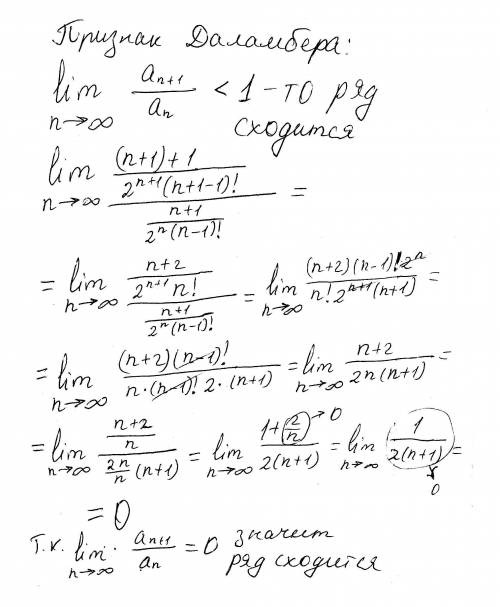 Признак Даламбера:
lim n→∞ a_{n+1}/a_n < 1 - то ряд
сходится
lim n→∞ ((n+1)+1)/(2^{n+1}(n+1-1)!) / ((n+1)/(2^n(n-1)!)) =
= lim n→∞ ((n+2)/(2^{n+1} n!)) / ((n+1)/(2^n(n-1)!)) = lim n→∞ ((n+2)(n-1)!2^n)/(n! 2^{n+1}(n+1)) =
= lim n→∞ ((n+2)(n-1)!)/(n·(n-1)! 2·(n+1)) = lim n→∞ (n+2)/(2n(n+1)) =
= lim n→∞ ((n+2)/n)/((2n/n)(n+1)) = lim n→∞ (1+(2/n)→0)/(2(n+1)) = lim n→∞ 1/(2(n+1)) → 0 =
= 0
Т.к. lim n→∞ · a_{n+1}/a_n = 0 значит
ряд сходится